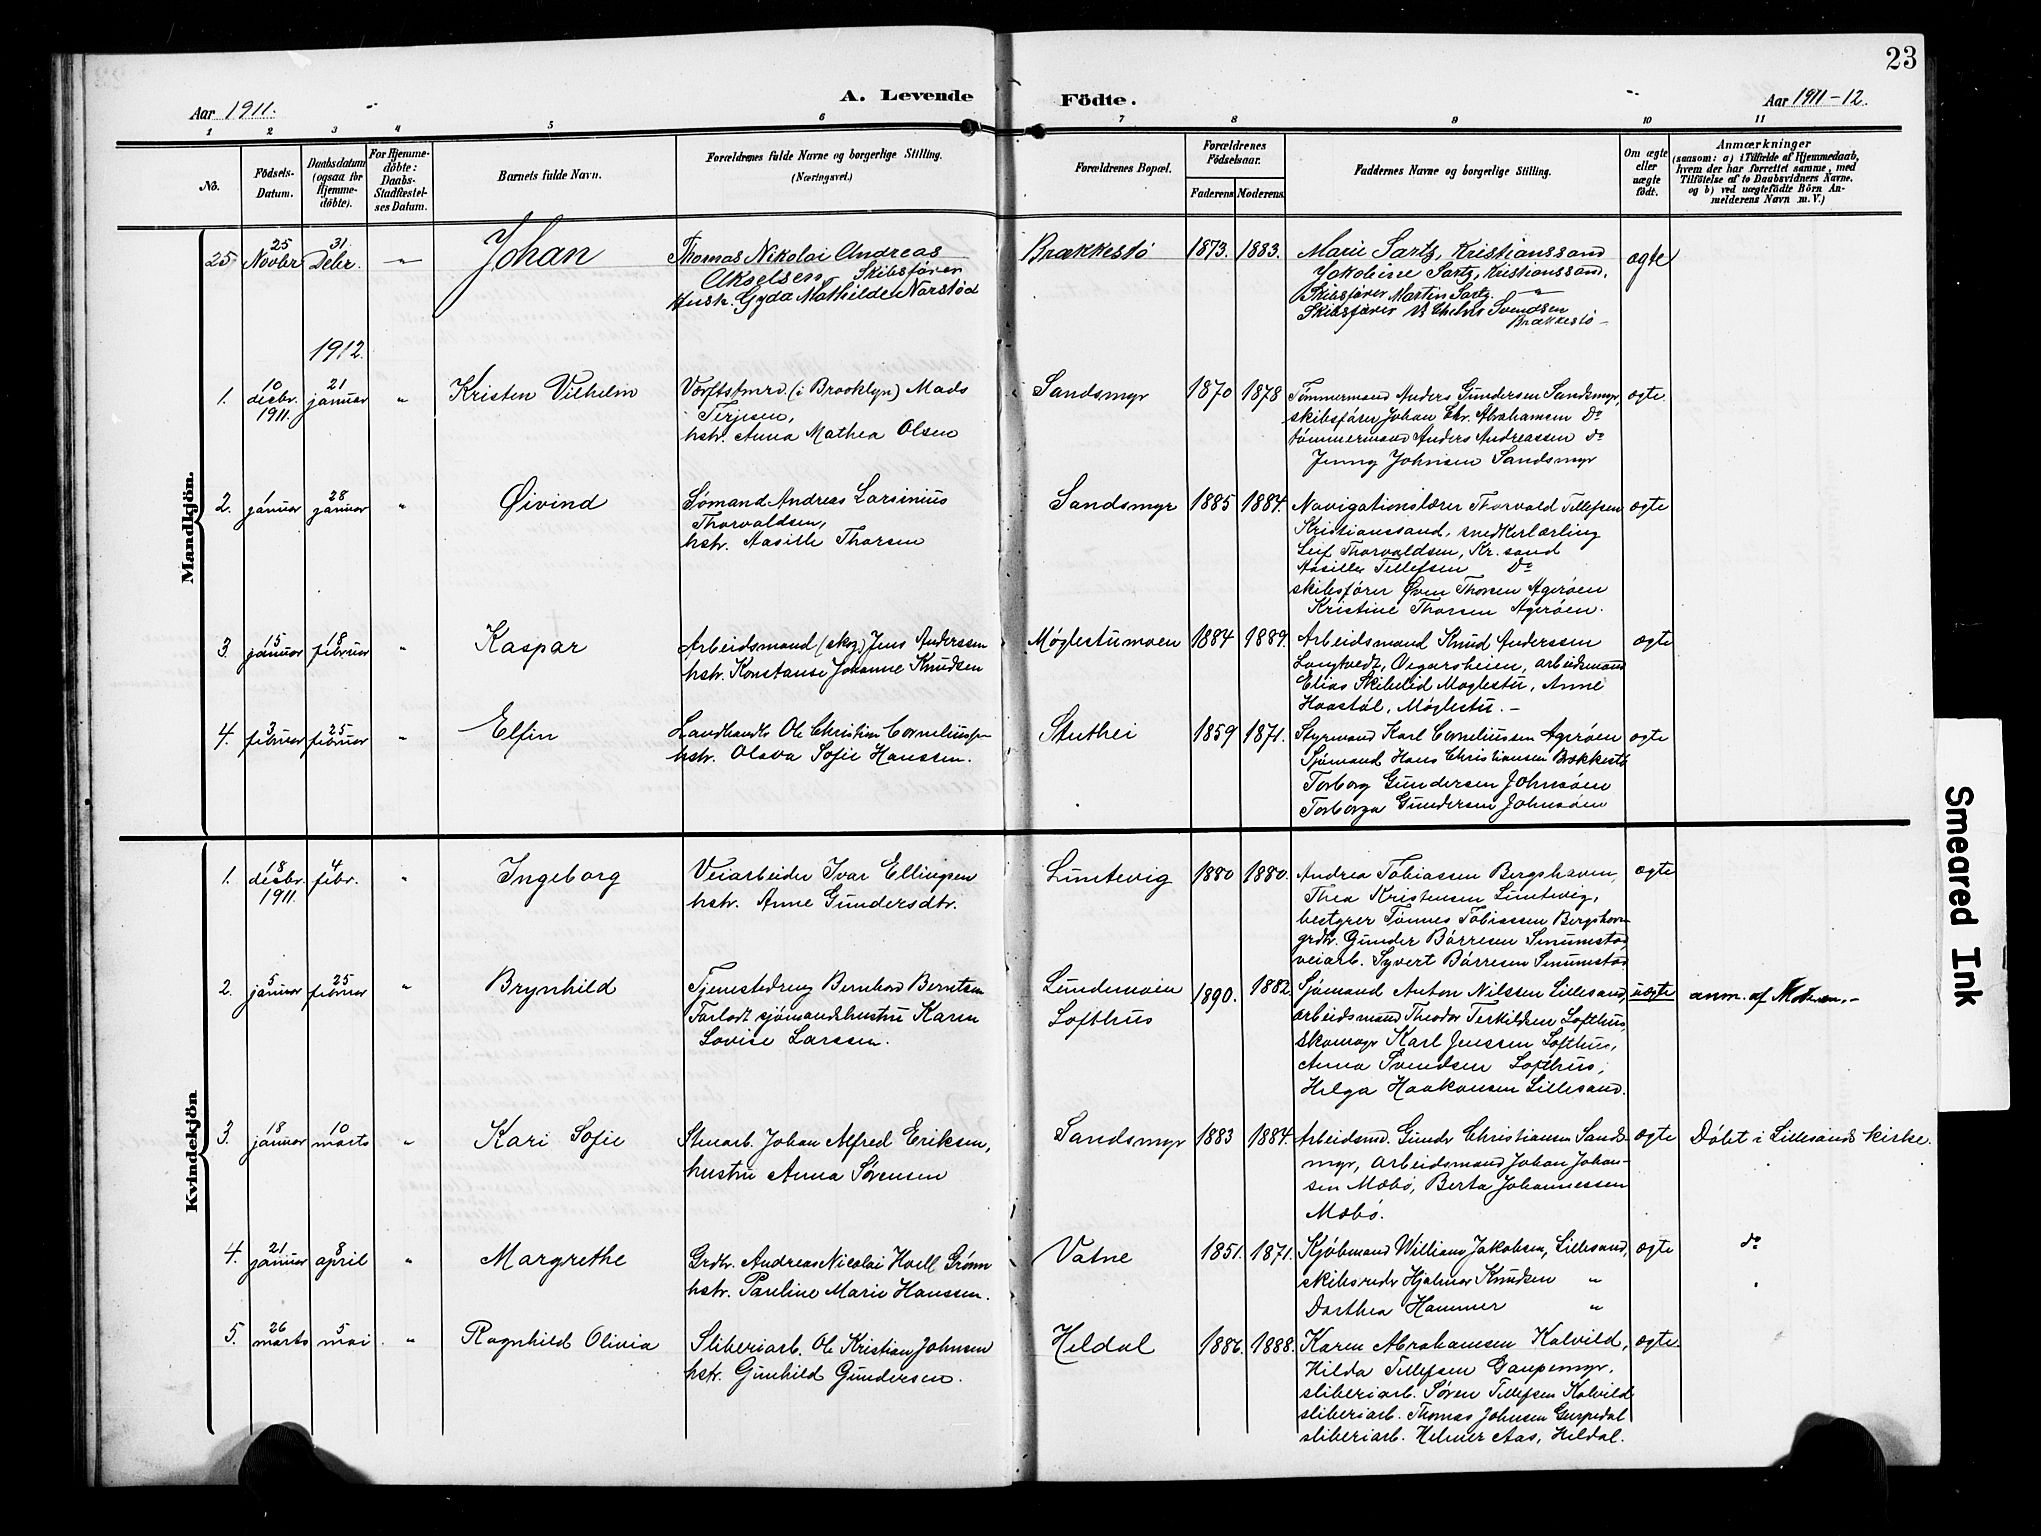 23
A. Levende Födte.
Aar 1911.
Aar 1911-12.
1 2 3 4 5 6 7 8 9 10 11
No.
Födsels-Datum.
Daabsdatum (ogsaa for Hjemme-döbte).
For Hjemme-döbte: Daabs-Stadfæstel-ses Datum.
Barnets fulde Navn.
Forældrenes fulde Navne og borgerlige Stilling.
(Næringsvei.)
Forældrenes Bopæl.
Forældrenes Födselsaar.
Faderens Moderens
Faddernes Navne og borgerlige Stilling.
Om ægte eller uægte födt.
Anmærkninger
(saasom: a) i Tilfælde af Hjemmedaab,
hvem der har forrettet samme, med
Tilföielse af to Daabsvidners Navne.
og b) ved uægtefödte Börn An-
melderens Navn m. V.)
Mandkjön.
25 25 Novbr 31 Debr. " Johan
Thomas Nikolai Andreas
Akselsen, Skibsfører
Hustr. Gyda Mathilde Narstød
Brækkestö 1873. 1883.
Marie Sartz, Kristianssand
Jakobine Sartz, Kristianssand,
Skibsfører Martin Sartz "
Skibsfører Svendsen
Brækkestö
ægte
1912.
1. 10 desbr. 1911. 21 januar " Kristen Vilhelm
Værftstmrd. (i Brooklyn) Mads
Terjesen,
hstr. Anna Mathea Olsen
Sandsmyr 1870 1878
Tømmermand Anders Gundersen Sandsmyr,
skibsfører Johan Chr. Abrahamsen Do
tømmermand Anders Andreassen Do
Jenny Johnsen Sandsmyr
ægte.
2. 1 januar 28 januar " Øivind
Sømand Andreas Larsinius
Thorvaldsen,
hstr. Aasille Thorsen
Sandsmyr 1885 1884.
Navigationslærer Thorvald Tellefsen
Kristianssand, snedkerlærling
Leif Thorvaldsen, Kr.sand
Aasille Tellefsen Do
skibsfører Even Thorsen Agerøen
Kristine Thorsen Agerøen.
ægte
3. 15 januar 18 februar " Kaspar
Arbeidsmand (skog) Jens Anderssen
hstr. Konstanse Johanne Knudsen
Møglestumoen 1884 1889.
Arbeidsmand Knud Anderssen
Langtvedt, Vegarsheien, arbeidsmand
Elias Skibelid Møglestu, Anne
Haastøl, Møglestu.
ægte
4. 3 februar 25 februar " Elfin
Landhandl. Ole Christian Corneliussen
hstr. Olava Sofie Hanssen.
Stuthei 1859 1871.
Styrmand Karl Corneliussen Agerøen
Sjømand Hans Christiansen Brækkestö
Torborg Gundersen Johnsøen
Torborga Gundersen Johnsøen
ægte
Kvindekjön
1. 18 desbr. 1911. 4 febr. " Ingeborg
Veiarbeider Ivar Ellingsen
hstr. Anne Gundersdtr.
Luntevig 1880 1880.
Andrea Tobiassen Bergshaven,
Thea Kristensen Luntevig,
bestyrer Tønnes Tobiassen Bergshavn
grdbr. Gunder Børresen Smumstad,
veiarb. Syvert Børresen Smumstad
ægte
2. 5 januar 25 februar " Brynhild
Tjenestedreng Bernhard Berntsen
Forladt sjømandshustru Karen
Lovise Larssen.
Lundemoen
Lofthus
1890. 1882
Sjømand Anton Nilssen Lillesand,
arbeidsmand Theodor Terkildsen Lofthus,
skomagr Karl Jenssen Lofthus,
Anna Svendsen Lofthus,
Helga Haakonsen Lillesand.
uægte
anm. af Moderen.-
3. 18 januar 10 marts " Kari Sofie
Stenarb. Johan Alfred Eriksen,
hustru Anna Sørensen
Sandsmyr 1883 1884.
Arbeidsmd. Gundr Christiansen Sands-
myr, arbeidsmand Johan Johan-
sen Mæbø, Berta Johannessen
Mæbø.
ægte
Døbt i Lillesands kirke.
4. 21 januar 8 april " Margrethe
Grdbr. Andreas Nicolai Hvell Grønn
hstr. Pauline Marie Hanssen.
Vatne 1851. 1871.
Kjøbmand William Jakobsen, Lillesand,
skibsredr Hjalmar Knudsen "
Dorthea Hammer "
ægte
do
5. 26 marts 5 mai " Ragnhild Olivia
Sliberiarb. Ole Kristian Johnsen
hstr. Gunhild Gundersen.
Heldal 1886. 1888.
Karen Abrahamsen Kalvild,
Hilda Tellefsen Gaupemyr,
sliberiarb. Søren Tellefsen Kalvild
sliberiarb. Thomas Johnsen Gurpedal
sliberiarb. Helmer Aas, Heldal.
ægte.
Smeared Ink